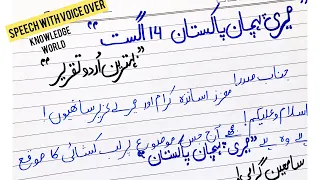 SPEECH WITH VOICE OVER
KNOWLEDGE
WORLD
"میری پہچان پاکستان 14 اگست"
"بہترین اُردو تقریر"
جناب صدر! معزز اساتذہ کرام اور میرے عزیز ساتھیوں!
اسلام و علیکم! مجھے آج جس موضوع پر لب کشائی کا موقع
ہے وہ ہے "میری پہچان پاکستان"
سامعین گرامی!